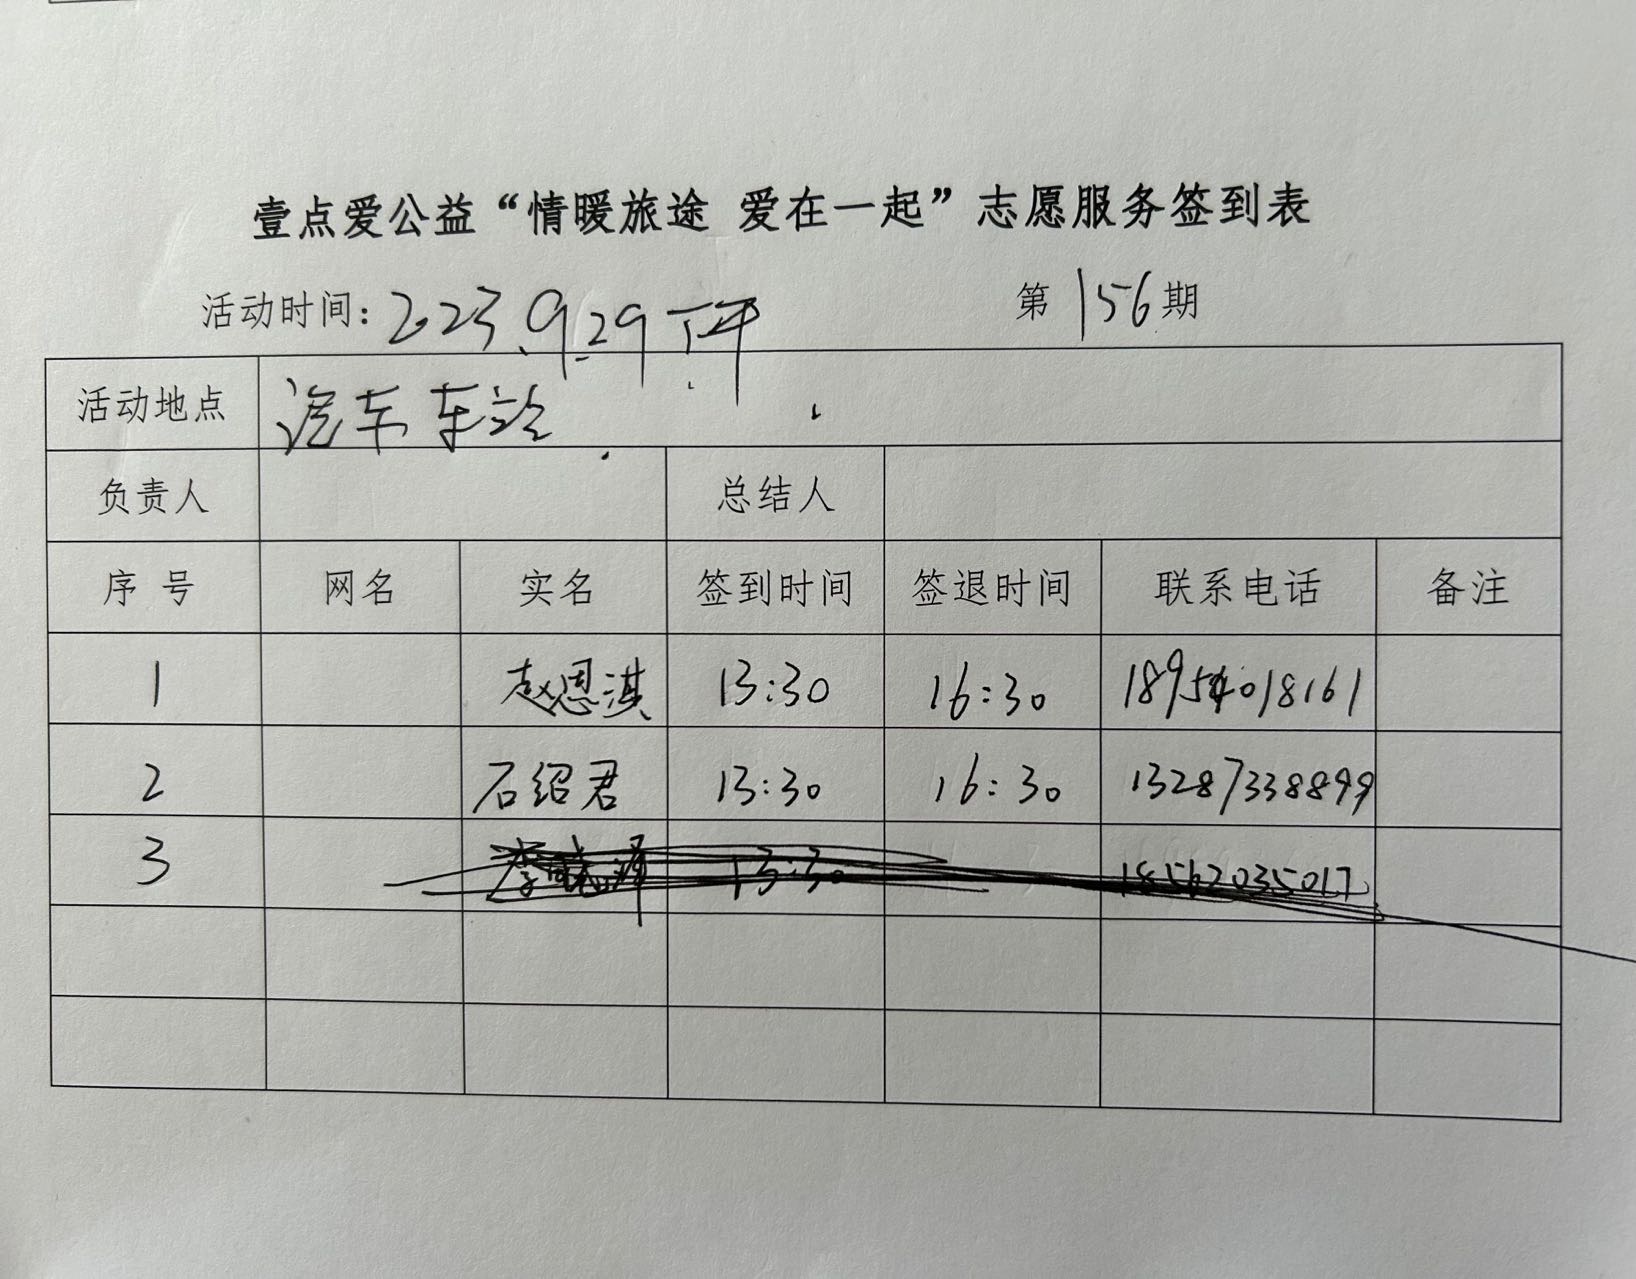 壹点爱公益“情暖旅途 爱在一起”志愿服务签到表
活动时间：2023.9.29下午 第156期
活动地点 汽车车站
负责人 总结人
序号 网名 实名 签到时间 签退时间 联系电话 备注
1 赵恩淇 13:30 16:30 18954018161
2 石绍君 13:30 16:30 13287338899
3 李 泽 13:30 18562035017